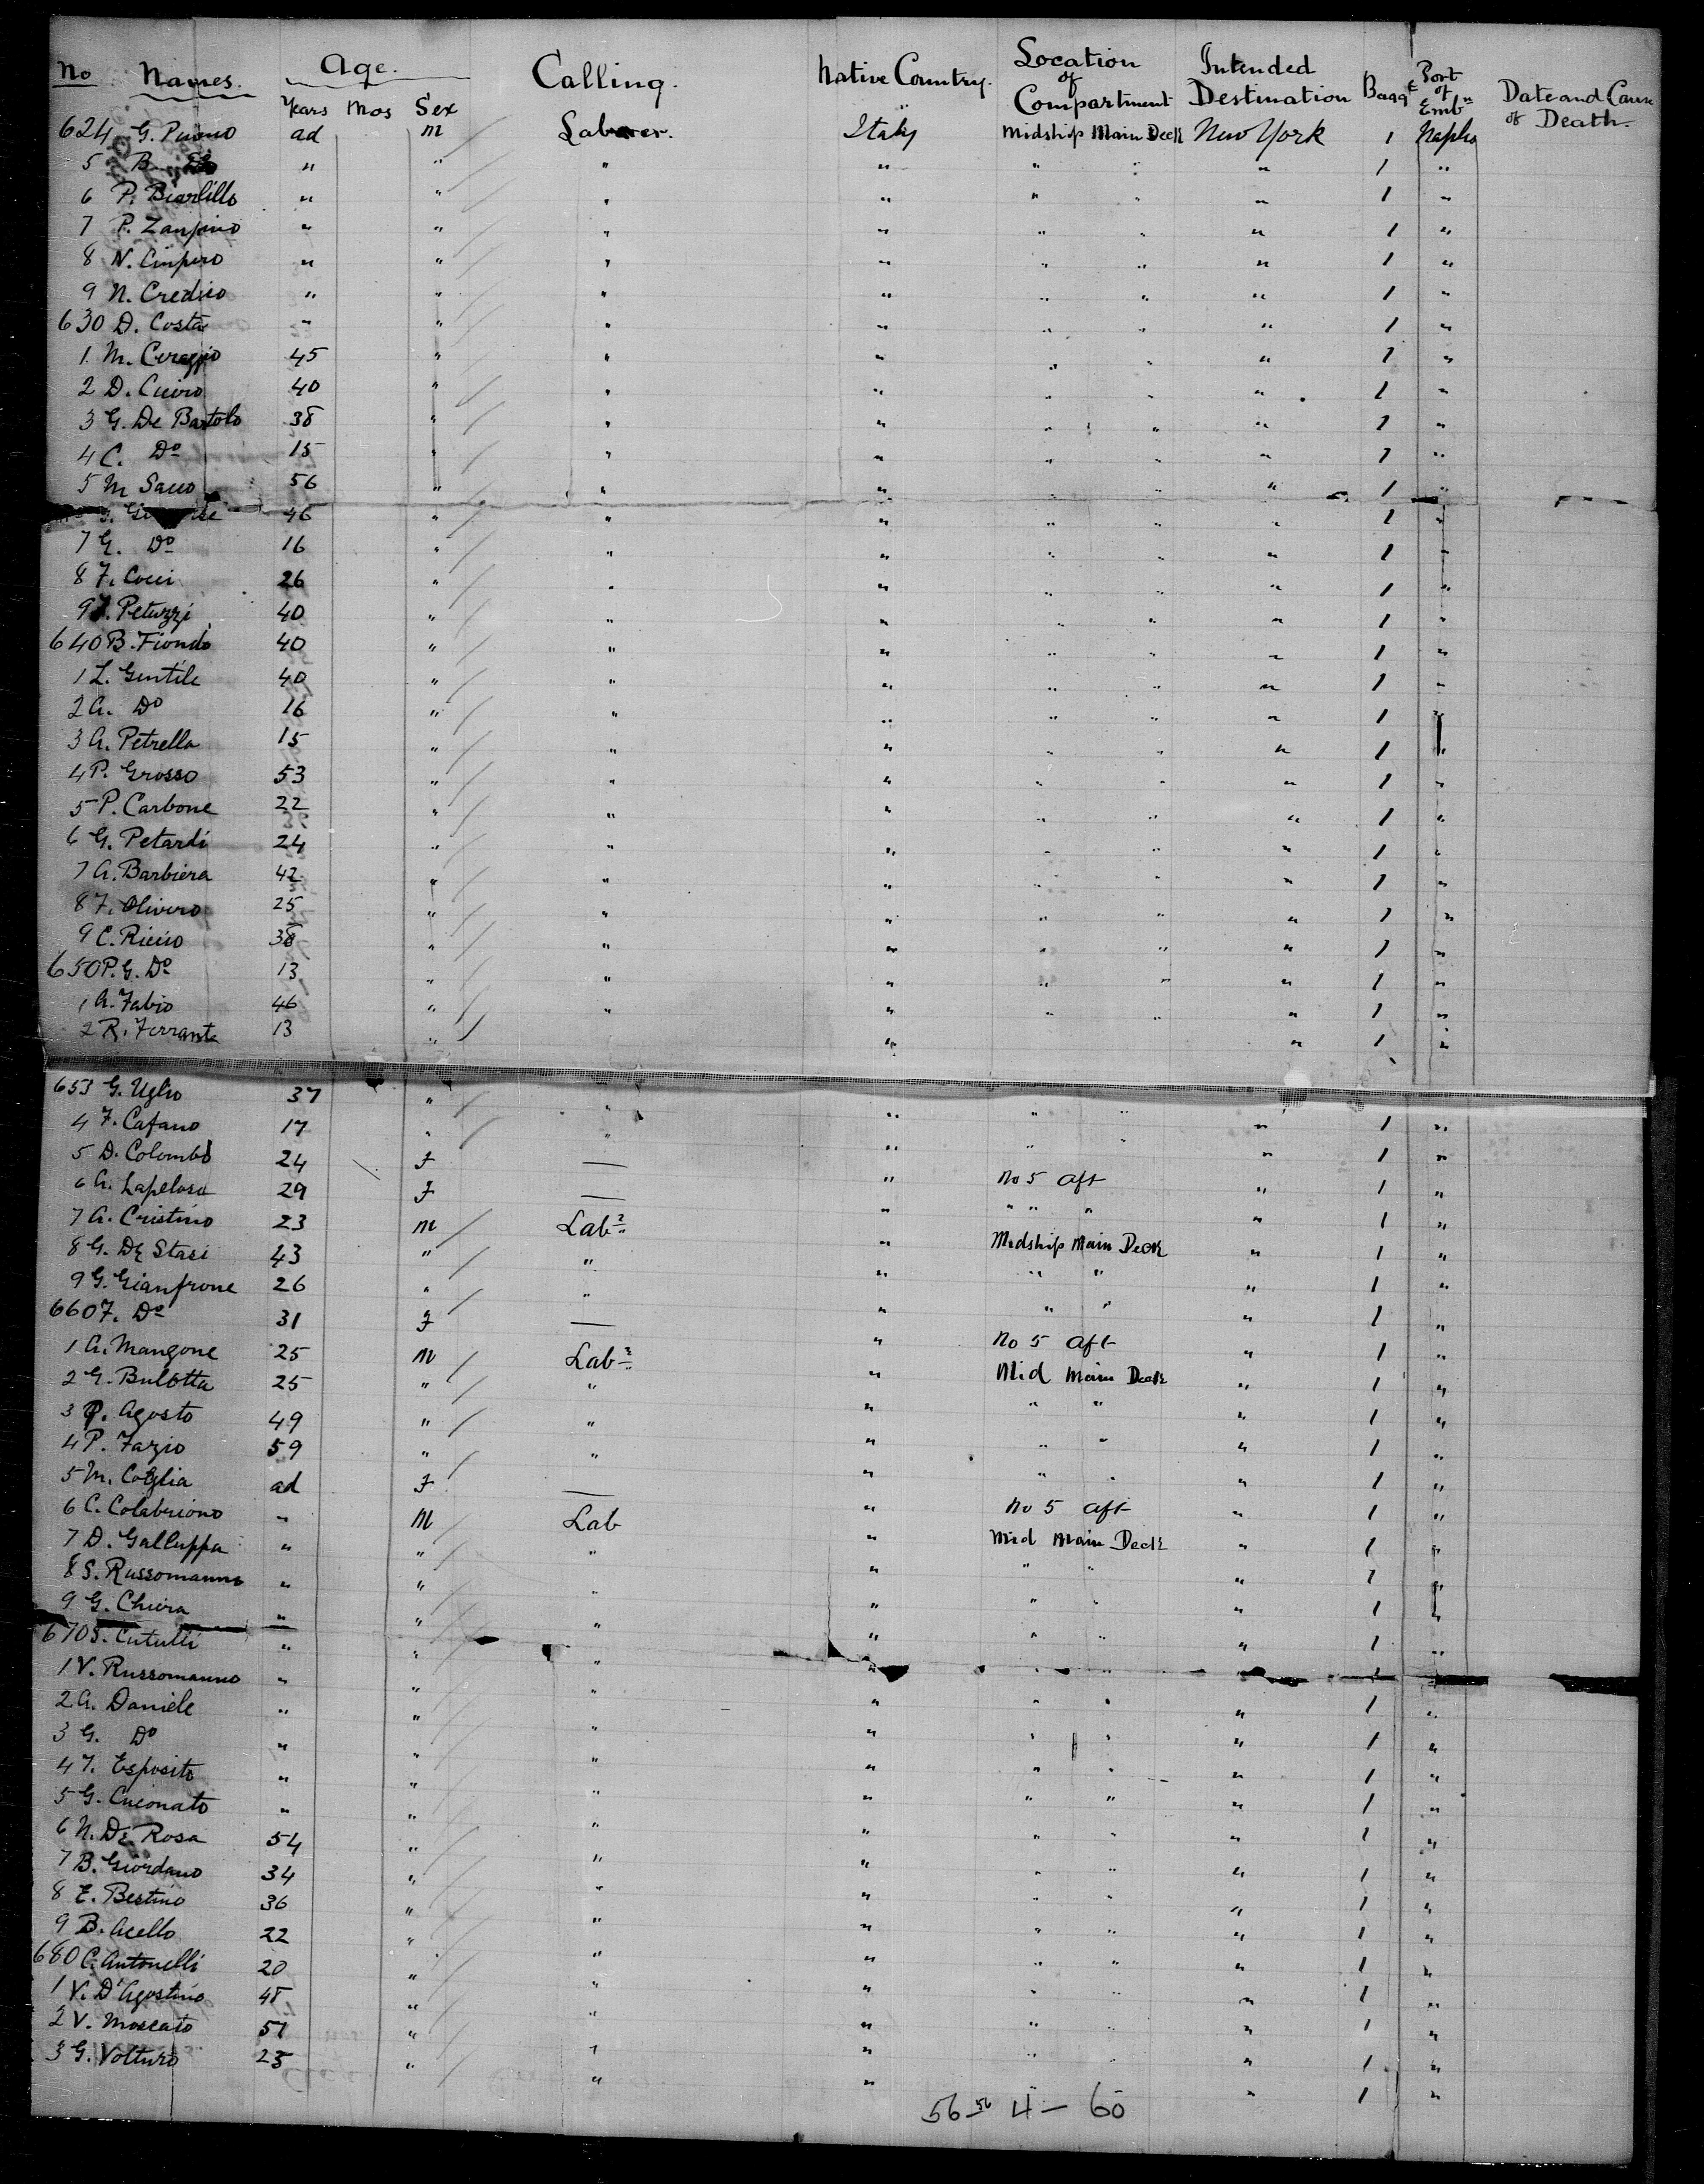 No Names. Age. Years Mos Sex Calling. Native Country. Location of Compartment Intended Destination Bagg^e Port of Emb^n Date and Cause of Death.
624 G. ad m Laborer. Italy Midship Main Deck New York 1 Naples
5 B. " " " " " " " 1 "
6 P. " " " " " " " 1 "
7 P. Zanfino " " " " " " " 1 "
8 N. " " " " " " " 1 "
9 N. Credico " " " " " " " 1 "
630 D. Costa " " " " " " " 1 "
1 M. Ceraggio 45 " " " " " " 1 "
2 D. Cuiro 40 " " " " " " 1 "
3 G. De Bartolo 38 " " " " " " 1 "
4 C. Do 15 " " " " " " 1 "
5 M Sacco 56 " " " " " " 1 "
46 " " " " " " 1 "
7 G. Do 16 " " " " " " 1 "
8 F. Cocci 26 " " " " " " 1 "
9 Petuzzi 40 " " " " " " 1 "
640 B. Fiondo 40 " " " " " " 1 "
1 L. Gentile 40 " " " " " " 1 "
2 A. Do 16 " " " " " " 1 "
3 A. Petrella 15 " " " " " " 1 "
4 P. Grosso 53 " " " " " " 1 "
5 P. Carbone 22 " " " " " " 1 "
6 G. Petardi 24 " " " " " " 1 "
7 A. Barbiera 42 " " " " " " 1 "
8 F. Olivero 25 " " " " " " 1 "
9 C. Riccio 38 " " " " " " 1 "
650 P. G. Do 13 " " " " " " 1 "
1 A. Fabio 46 " " " " " " 1 "
2 R. Ferrante 13 " " " 1 "
653 G. Uglio 37 " " " " " " 1 "
4 F. Cafano 17 " " " " " " 1 "
5 D. Colombo 24 F — " No 5 Aft " 1 "
6 A. Lapelosa 29 F — " " " " " 1 "
7 A. Cristino 23 M Lab^r " Midship Main Deck " 1 "
8 G. De Stasi 43 " " " " " " 1 "
9 G. Gianfrone 26 " " " " " " 1 "
660 F. Do 31 F — " No 5 Aft " 1 "
1 A. Mangone 25 M Lab^r " Mid Main Deck " 1 "
2 G. Bulotta 25 " " " " " " 1 "
3 P. Agosto 49 " " " " " " 1 "
4 P. Fazio 59 " " " " " " 1 "
5 M. Coglia ad F — " No 5 Aft " 1 "
6 C. Colabriono " M Lab " Mid Main Deck " 1 "
7 D. Galluppa " " " " " " " 1 "
8 S. Russomanno " " " " " " " 1 "
9 G. Chiera " " " " " " " 1 "
670 S. Cutulli " " " " " " " 1 "
1 V. Russomanno " " " " " " " 1 "
2 A. Daniele " " " " " " " 1 "
3 G. Do " " " " " " " 1 "
4 F. Esposito " " " " " " " 1 "
5 G. Cuconato " " " " " " " 1 "
6 N. De Rosa 54 " " " " " " 1 "
7 B. Giordano 34 " " " " " " 1 "
8 E. Bertino 36 " " " " " " 1 "
9 B. Acello 22 " " " " " " 1 "
680 C. Antonelli 20 " " " " " " 1 "
1 V. D'Agostino 48 " " " " " " 1 "
2 V. Moscato 51 " " " " " " 1 "
3 G. Volturo 25 " " " " " " 1 "
56 56 4 — 60